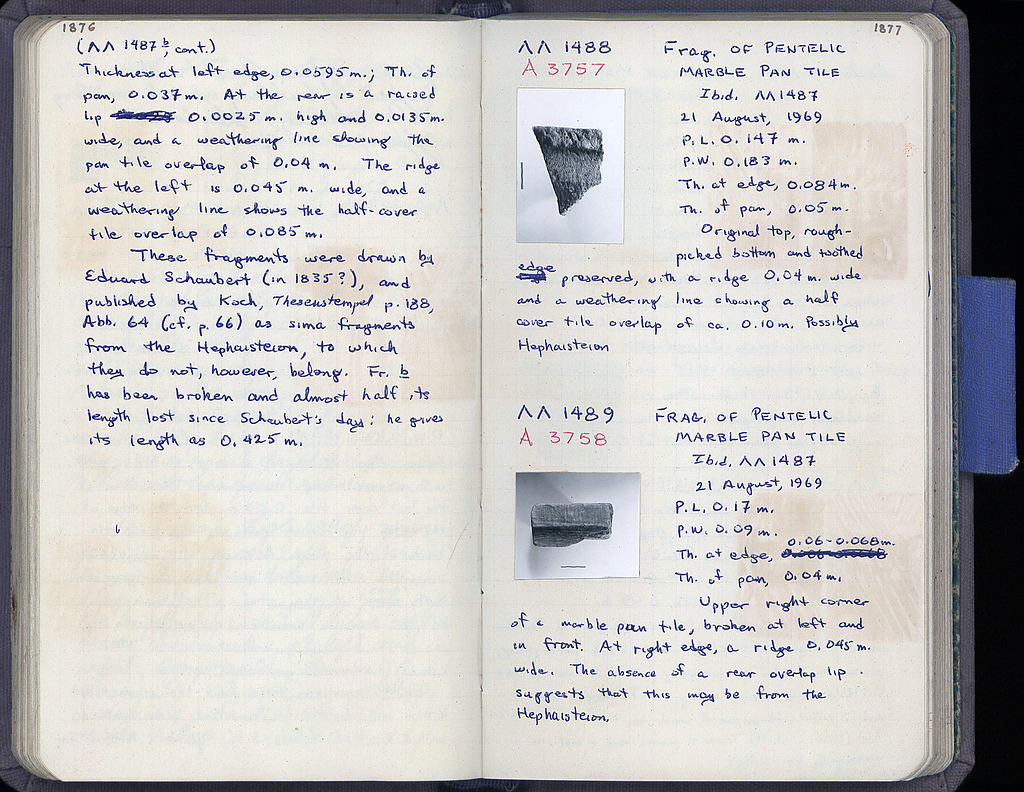 1876
(ΛΛ 1487 b, cont.)
Thickness at left edge, 0.0595 m.; Th. of
pan, 0.037 m. At the rear is a raised
lip 0.0025 m. high and 0.0135 m.
wide, and a weathering line showing the
pan tile overlap of 0.04 m. The ridge
at the left is 0.045 m. wide, and a
weathering line shows the half-cover
tile overlap of 0.085 m.
These fragments were drawn by
Eduard Schaubert (in 1835?), and
published by Koch, Theseustempel p. 188,
Abb. 64 (cf. p. 66) as sima fragments
from the Hephaisteion, to which
they do not, however, belong. Fr. b
has been broken and almost half its
length lost since Schaubert's day: he gives
its length as 0.425 m.
1877
ΛΛ 1488
A 3757
Frag. OF PENTELIC
MARBLE PAN TILE
Ibid. ΛΛ 1487
21 August, 1969
P.L. 0.147 m.
P.W. 0.183 m.
Th. at edge, 0.084 m.
Th. of pan, 0.05 m.
Original top, rough-
picked bottom and toothed
edge preserved, with a ridge 0.04 m. wide
and a weathering line showing a half
cover tile overlap of ca. 0.10 m. Possibly
Hephaisteion
ΛΛ 1489
A 3758
FRAG. OF PENTELIC
MARBLE PAN TILE
Ibid. ΛΛ 1487
21 August, 1969
P.L. 0.17 m.
P.W. 0.09 m.
Th. at edge, 0.06-0.068 m.
Th. of pan, 0.04 m.
Upper right corner
of a marble pan tile, broken at left and
in front. At right edge, a ridge 0.045 m.
wide. The absence of a rear overlap lip
suggests that this may be from the
Hephaisteion.